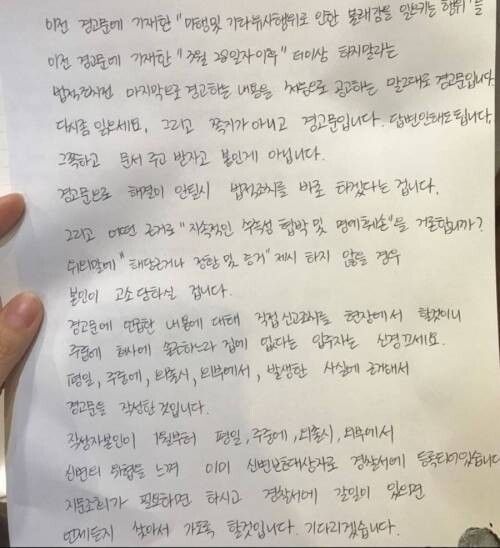 이전 경고문에 기재한 "미행및 기타유사행위로 인한 불쾌감을 일으키는 행위"를
이전 경고문에 기재한 "3월 28일자 이후" 더이상 하지말라는
법적조치전 마지막으로 경고하는 내용을 처음으로 공고하는 말그대로 경고문입니다.
다시좀 읽으세요. 그리고 쪽지가 아니고 경고문입니다. 답변안해도됩니다.
그쪽하고 문서 주고 받자고 붙인게 아닙니다.
경고문으로 해결이 안될시 법적조치를 바로 하겠다는 겁니다.
그리고 어떤 근거로 "지속적인 수측성 협박 및 명예훼손"을 거론합니까?
쉬운말에 "해당근거나 정황 및 증거" 제시 하지 않을 경우
본인이 고소 당하실 겁니다.
경고문에 언급한 내용에 대해 직접 신고조치를 현장에서 할것이니
주중에 회사에 출근하느라 집에 없다는 입주자는 신경끄세요.
평일, 주중에, 외출시, 외부에서, 발생한 사실에 근거해서
경고문을 작성한것입니다.
작성자본인이 1월부터 평일, 주중에, 외출시, 외부에서
신변의 위협을 느껴 이미 신변보호대상자로 경찰서에 등록되어있습니다
지문조회가 필요하면 하시고 경찰서에 갈일이 있으면
언제든지 찾아서 가도록 할것입니다. 기다리겠습니다.